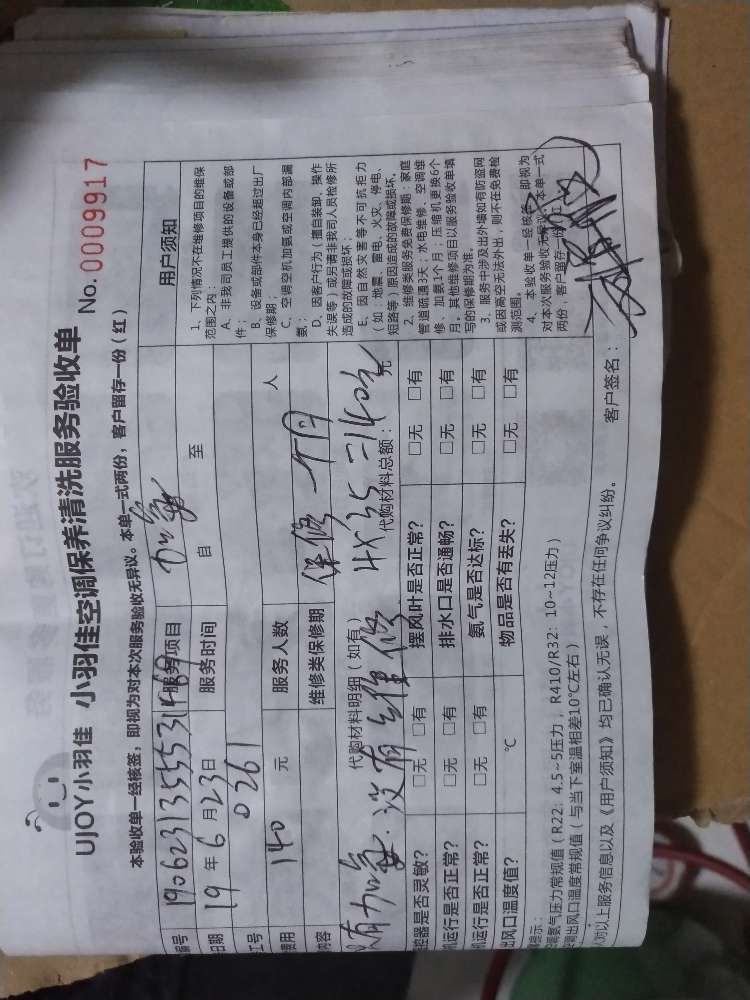 UJOY小羽佳 小羽佳空调保养清洗服务验收单 No. 0009917
本验收单一经核签，即视为对本次服务验收无异议。本单一式两份，客户留存一份（红）
编号 190623135553 服务项目 加氟
日期 19 年 6 月 23 日 服务时间 自 至
工号 0261
费用 140 元 服务人数 人
维修类保修期 保修一个月
内容
代购材料明细（如有）
只有加氟.没有维修 4×35=140元
代购材料总额： 元
控器是否灵敏? □无 □有 摆风叶是否正常? □无 □有
机运行是否正常? □无 □有 排水口是否通畅? □无 □有
机运行是否正常? □无 □有 氨气是否达标? □无 □有
出风口温度值? ℃ 物品是否有丢失? □无 □有
用户须知
1、下列情况不在维修项目的维保
范围之内：
A、非我司员工提供的设备或部
件；
B、设备或部件本身已经超过出厂
保修期；
C、空调空机加氨或空调内部漏
氨；
D、因客户行为（擅自装卸、操作
失误等）或另请非我司人员检修所
造成的故障或损坏；
E、因自然灾害等不可抗拒力
（如：地震、雷电、火灾、停电、
短路等）原因造成的故障或损坏。
2、维修类服务免费保修期：家庭
管道疏通3天；水电维修、空调维
修、加氨1个月；压缩机更换6个
月。其他维修项目以服务验收单填
写的保修期为准。
3、服务中涉及出外墙如有防盗网
或因高空无法外出，则不在免费检
测范围。
4、本验收单一经核签，即视为
对本次服务验收无异议。本单一式
两份，客户留存一份
提示：
空调氨气压力常规值（R22：4.5~5压力，R410/R32：10~12压力）
空调出风口温度常规值（与当下室温相差10℃左右）
人对以上服务信息以及《用户须知》均已确认无误，不存在任何争议纠纷。 客户签名：